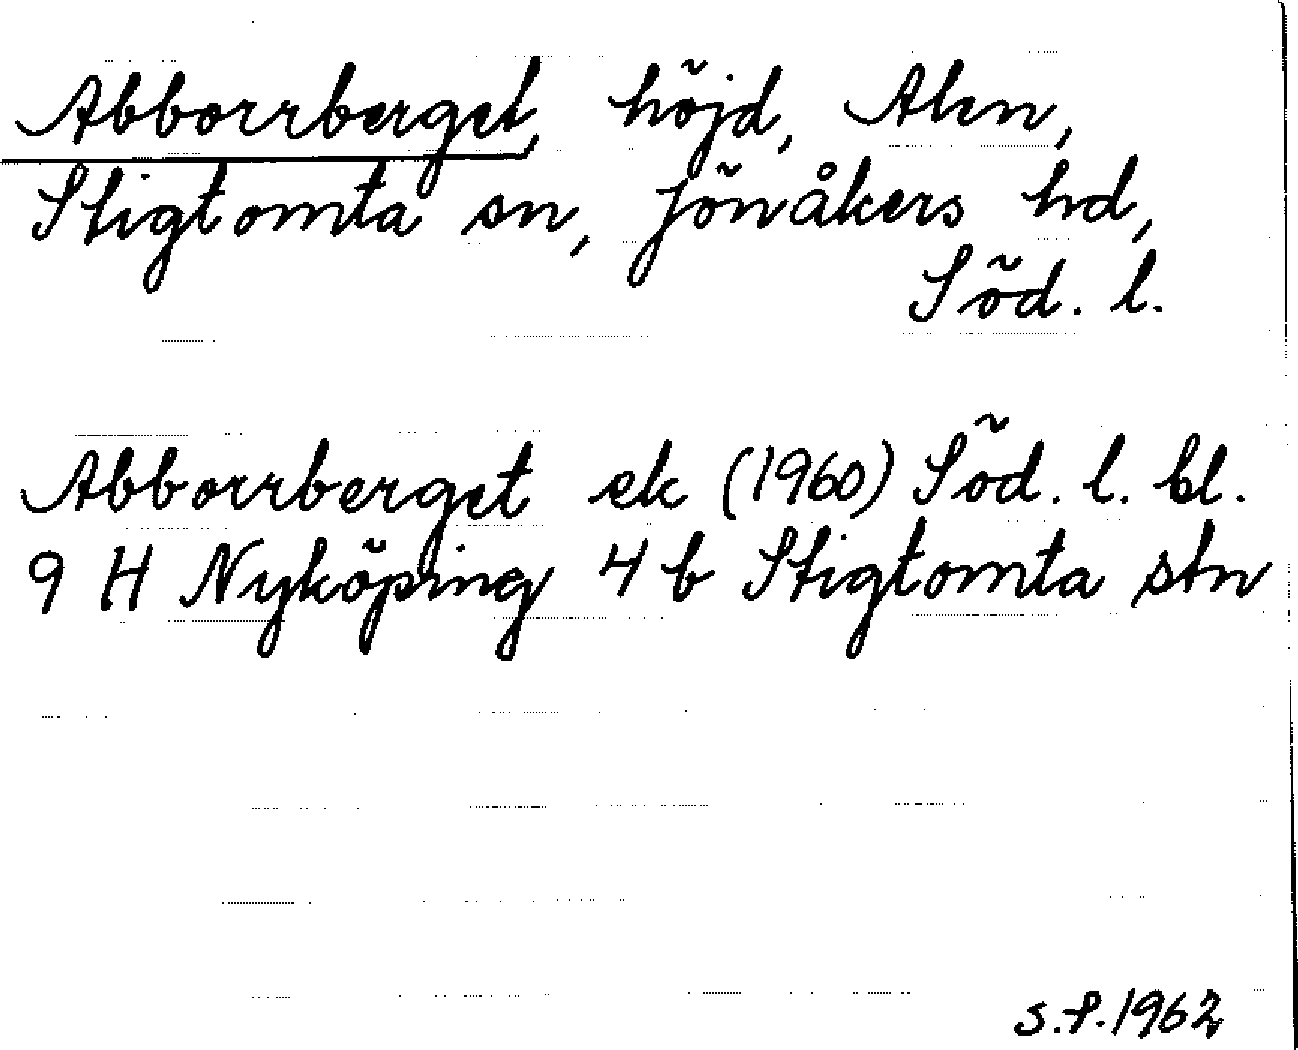 Abborrberget, höjd, Alen,
Stigtomta sn, Jönåkers hd,
Söd. l.
Abborrberget ek (1960) Söd. l. bl.
9 H Nyköping 4 b Stigtomta stn
s.f. 1962